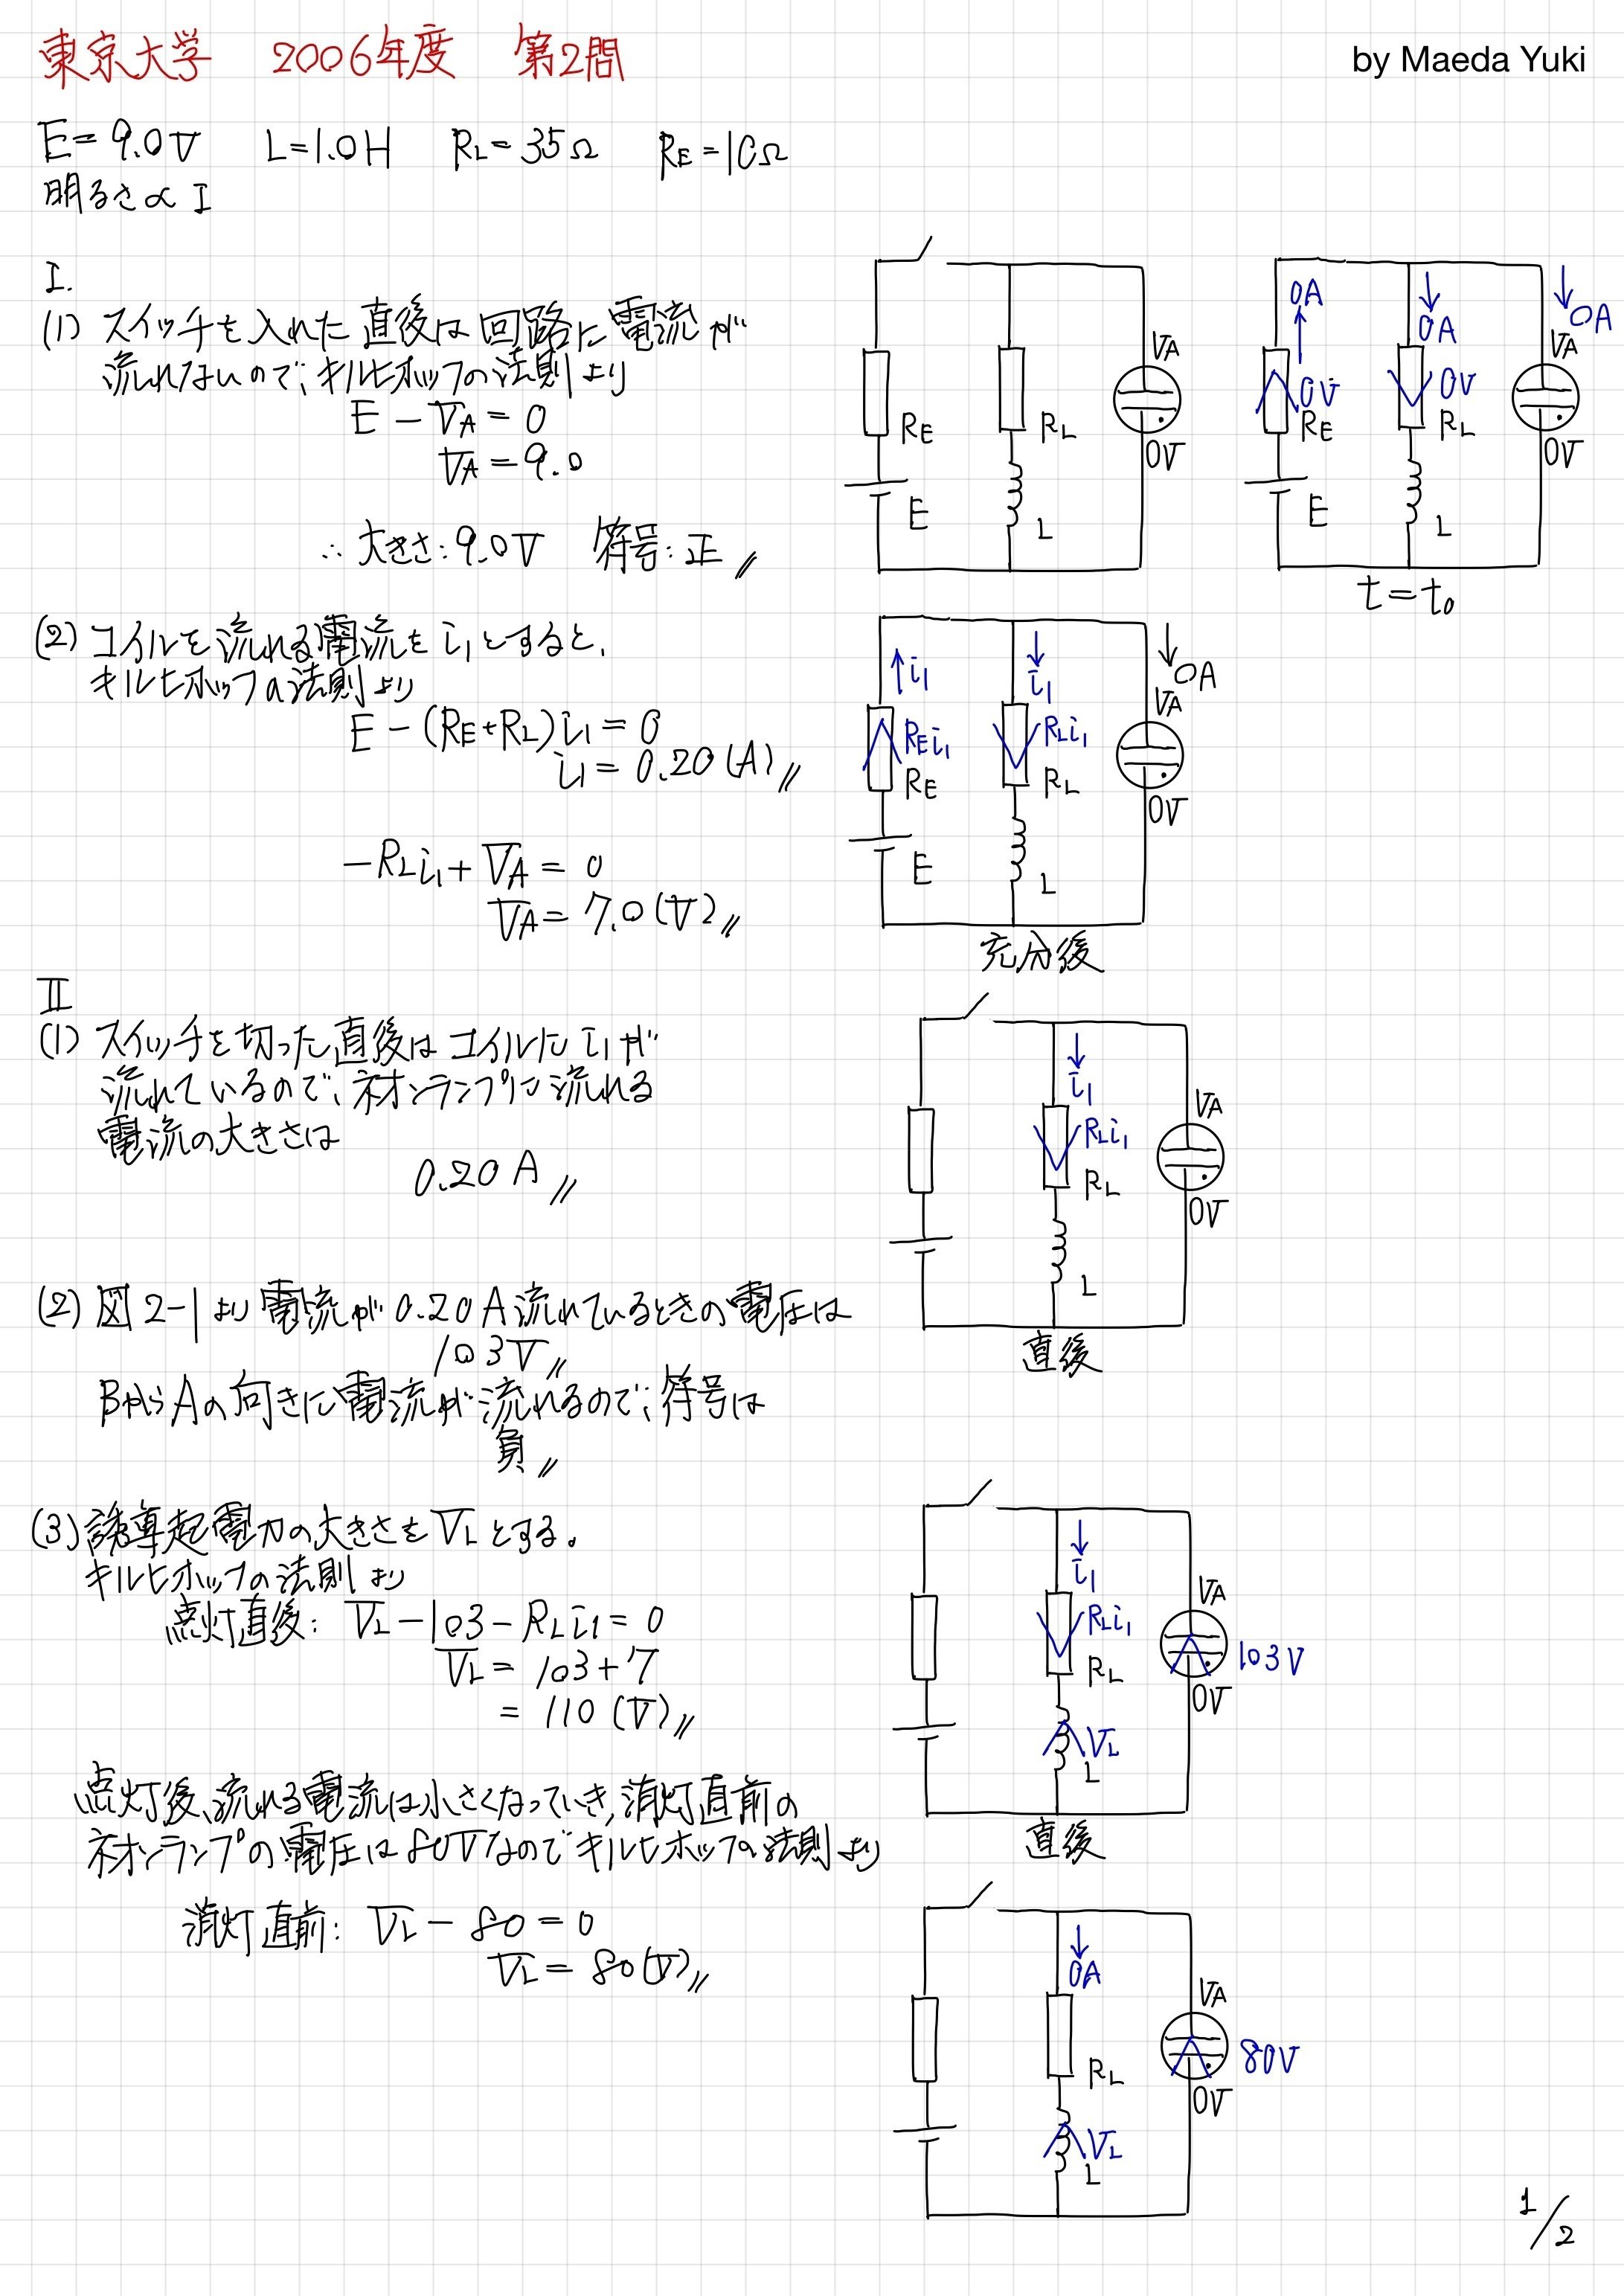 東京大学 2006年度 第2問
by Maeda Yuki
E=9.0V L=1.0H RL=35Ω RE=10Ω
明るさ∝I
I.
(1) スイッチを入れた直後は回路に電流が
流れないので、キルヒホッフの法則より
E-VA=0
VA=9.0
∴ 大きさ:9.0V 符号:正 //
RE
E
RL
L
VA
0V
0A
0V
RE
E
0A
0V
RL
L
0A
VA
0V
t=t0
(2) コイルを流れる電流をi1とすると、
キルヒホッフの法則より
E-(RE+RL)i1=0
i1=0.20(A) //
-RLi1+VA=0
VA=7.0(V) //
i1
REi1
RE
E
i1
RLi1
RL
L
0A
VA
0V
充分後
II
(1) スイッチを切った直後はコイルにi1が
流れているので、ネオンランプに流れる
電流の大きさは
0.20A //
i1
RLi1
RL
L
VA
0V
直後
(2) 図2-1より電流が0.20A流れているときの電圧は
103V //
BからAの向きに電流が流れるので、符号は
負 //
(3) 誘導起電力の大きさをVLとする。
キルヒホッフの法則より
点灯直後: VL-103-RLi1=0
VL=103+7
=110(V) //
i1
RLi1
RL
VL
L
VA
103V
0V
直後
点灯後、流れる電流は小さくなっていき、消灯直前の
ネオンランプの電圧は80Vなのでキルヒホッフの法則より
消灯直前: VL-80=0
VL=80(V) //
0A
RL
VL
L
VA
80V
0V
1/2